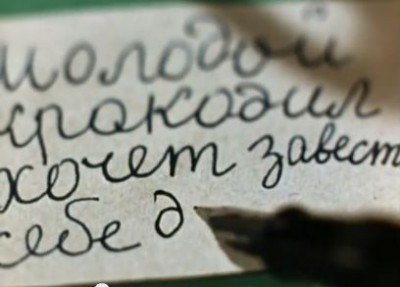 молодой
кракодил
хочет завест
себе д